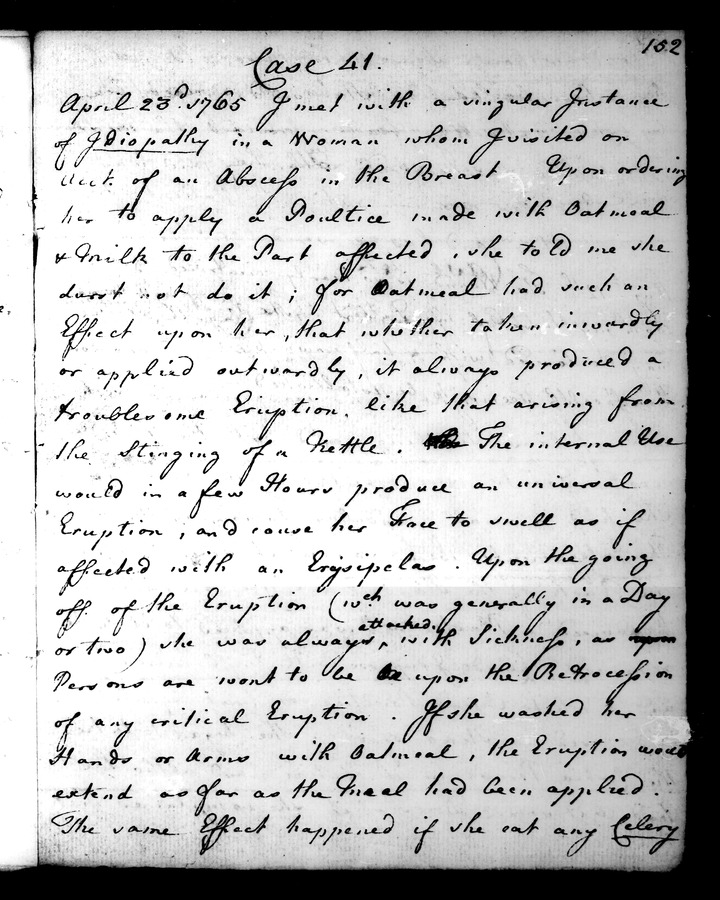 152
Case 41.
April 23d. 1765 I met with a singular Instance
of Idiopathy in a Woman whom I visited on
Acct. of an Abscess in the Breast Upon ordering
her to apply a Poultice made with Oatmeal
& Milk to the Part affected, she told me she
durst not do it; for Oatmeal had such an
Effect upon her, that whether taken inwardly
or applied outwardly, it always produced a
troublesome Eruption, like that arising from
the Stinging of a Nettle. The internal Use
would in a few Hours produce an universal
Eruption, and cause her Face to swell as if
affected with an Erysipelas. Upon the going
off of the Eruption (wch. was generally in a Day
or two) she was always attacked, with Sickness, as
Persons are wont to be upon the Retrocession
of any critical Eruption. If she washed her
Hands or Arms with Oatmeal, the Eruption would
extend as far as the Meal had been applied.
The same Effect happened if she eat any Celery